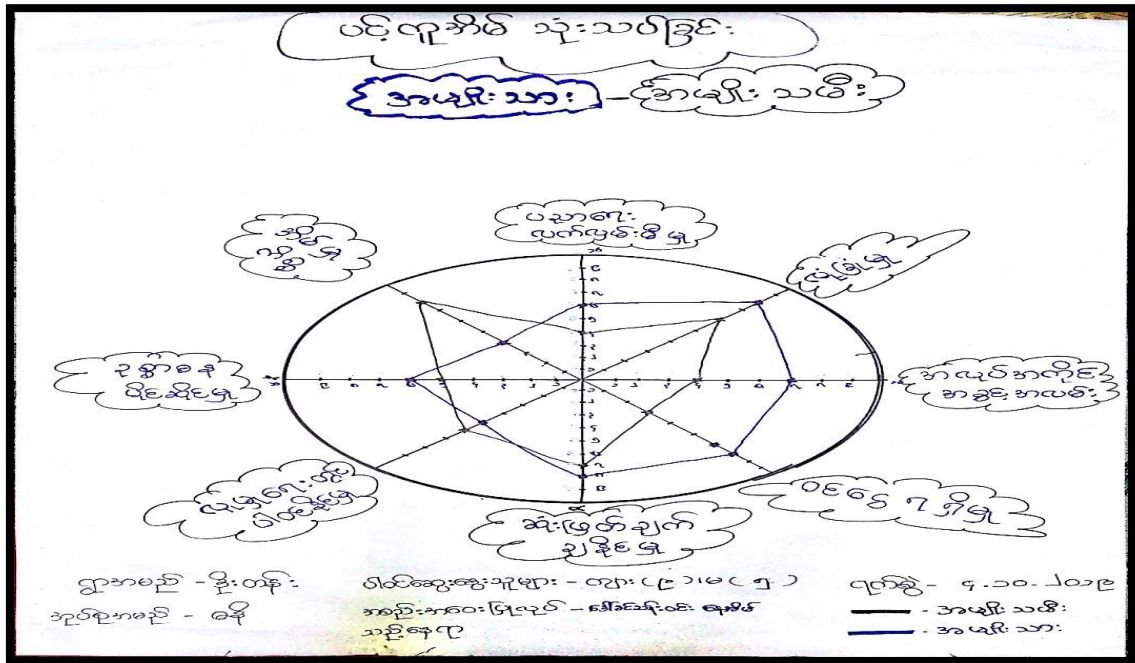 ပင့်ကူအိမ် သုံးသပ်ခြင်း
အမျိုးသား - အမျိုးသမီး
ပညာရေး
လက်လှမ်းမီမှု
လုံခြုံမှု
အလုပ်အကိုင်
အခွင့်အလမ်း
ဝင်ငွေ ရရှိမှု
ဆုံးဖြတ်ချက်
ချနိုင်မှု
လူမှုရေးတွင်
ပါဝင်နိုင်မှု
ဥစ္စာဓန
ပိုင်ဆိုင်မှု
ရွာအမည် - နှိုးတန်း
အုပ်စုအမည် - ဓနိ
ပါဝင်ဆွေးနွေးသူများ - ကျား (၉) ၊ မ (၅)
အစည်းအဝေးပြုလုပ် -
သည့်နေရာ
ရက်စွဲ - ၄.၁၀.၂၀၁၉
- အမျိုးသမီး
- အမျိုးသား